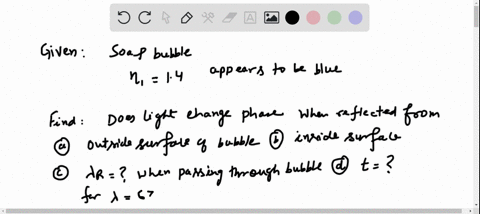 Given: Soap bubble
η₁ = 1.4 appears to be blue
Find: Does light change phase when reflected from
ⓐ outside surface of bubble ⓑ inside surface
ⓒ λR = ? when passing through bubble ⓓ t = ?
for λ = 67